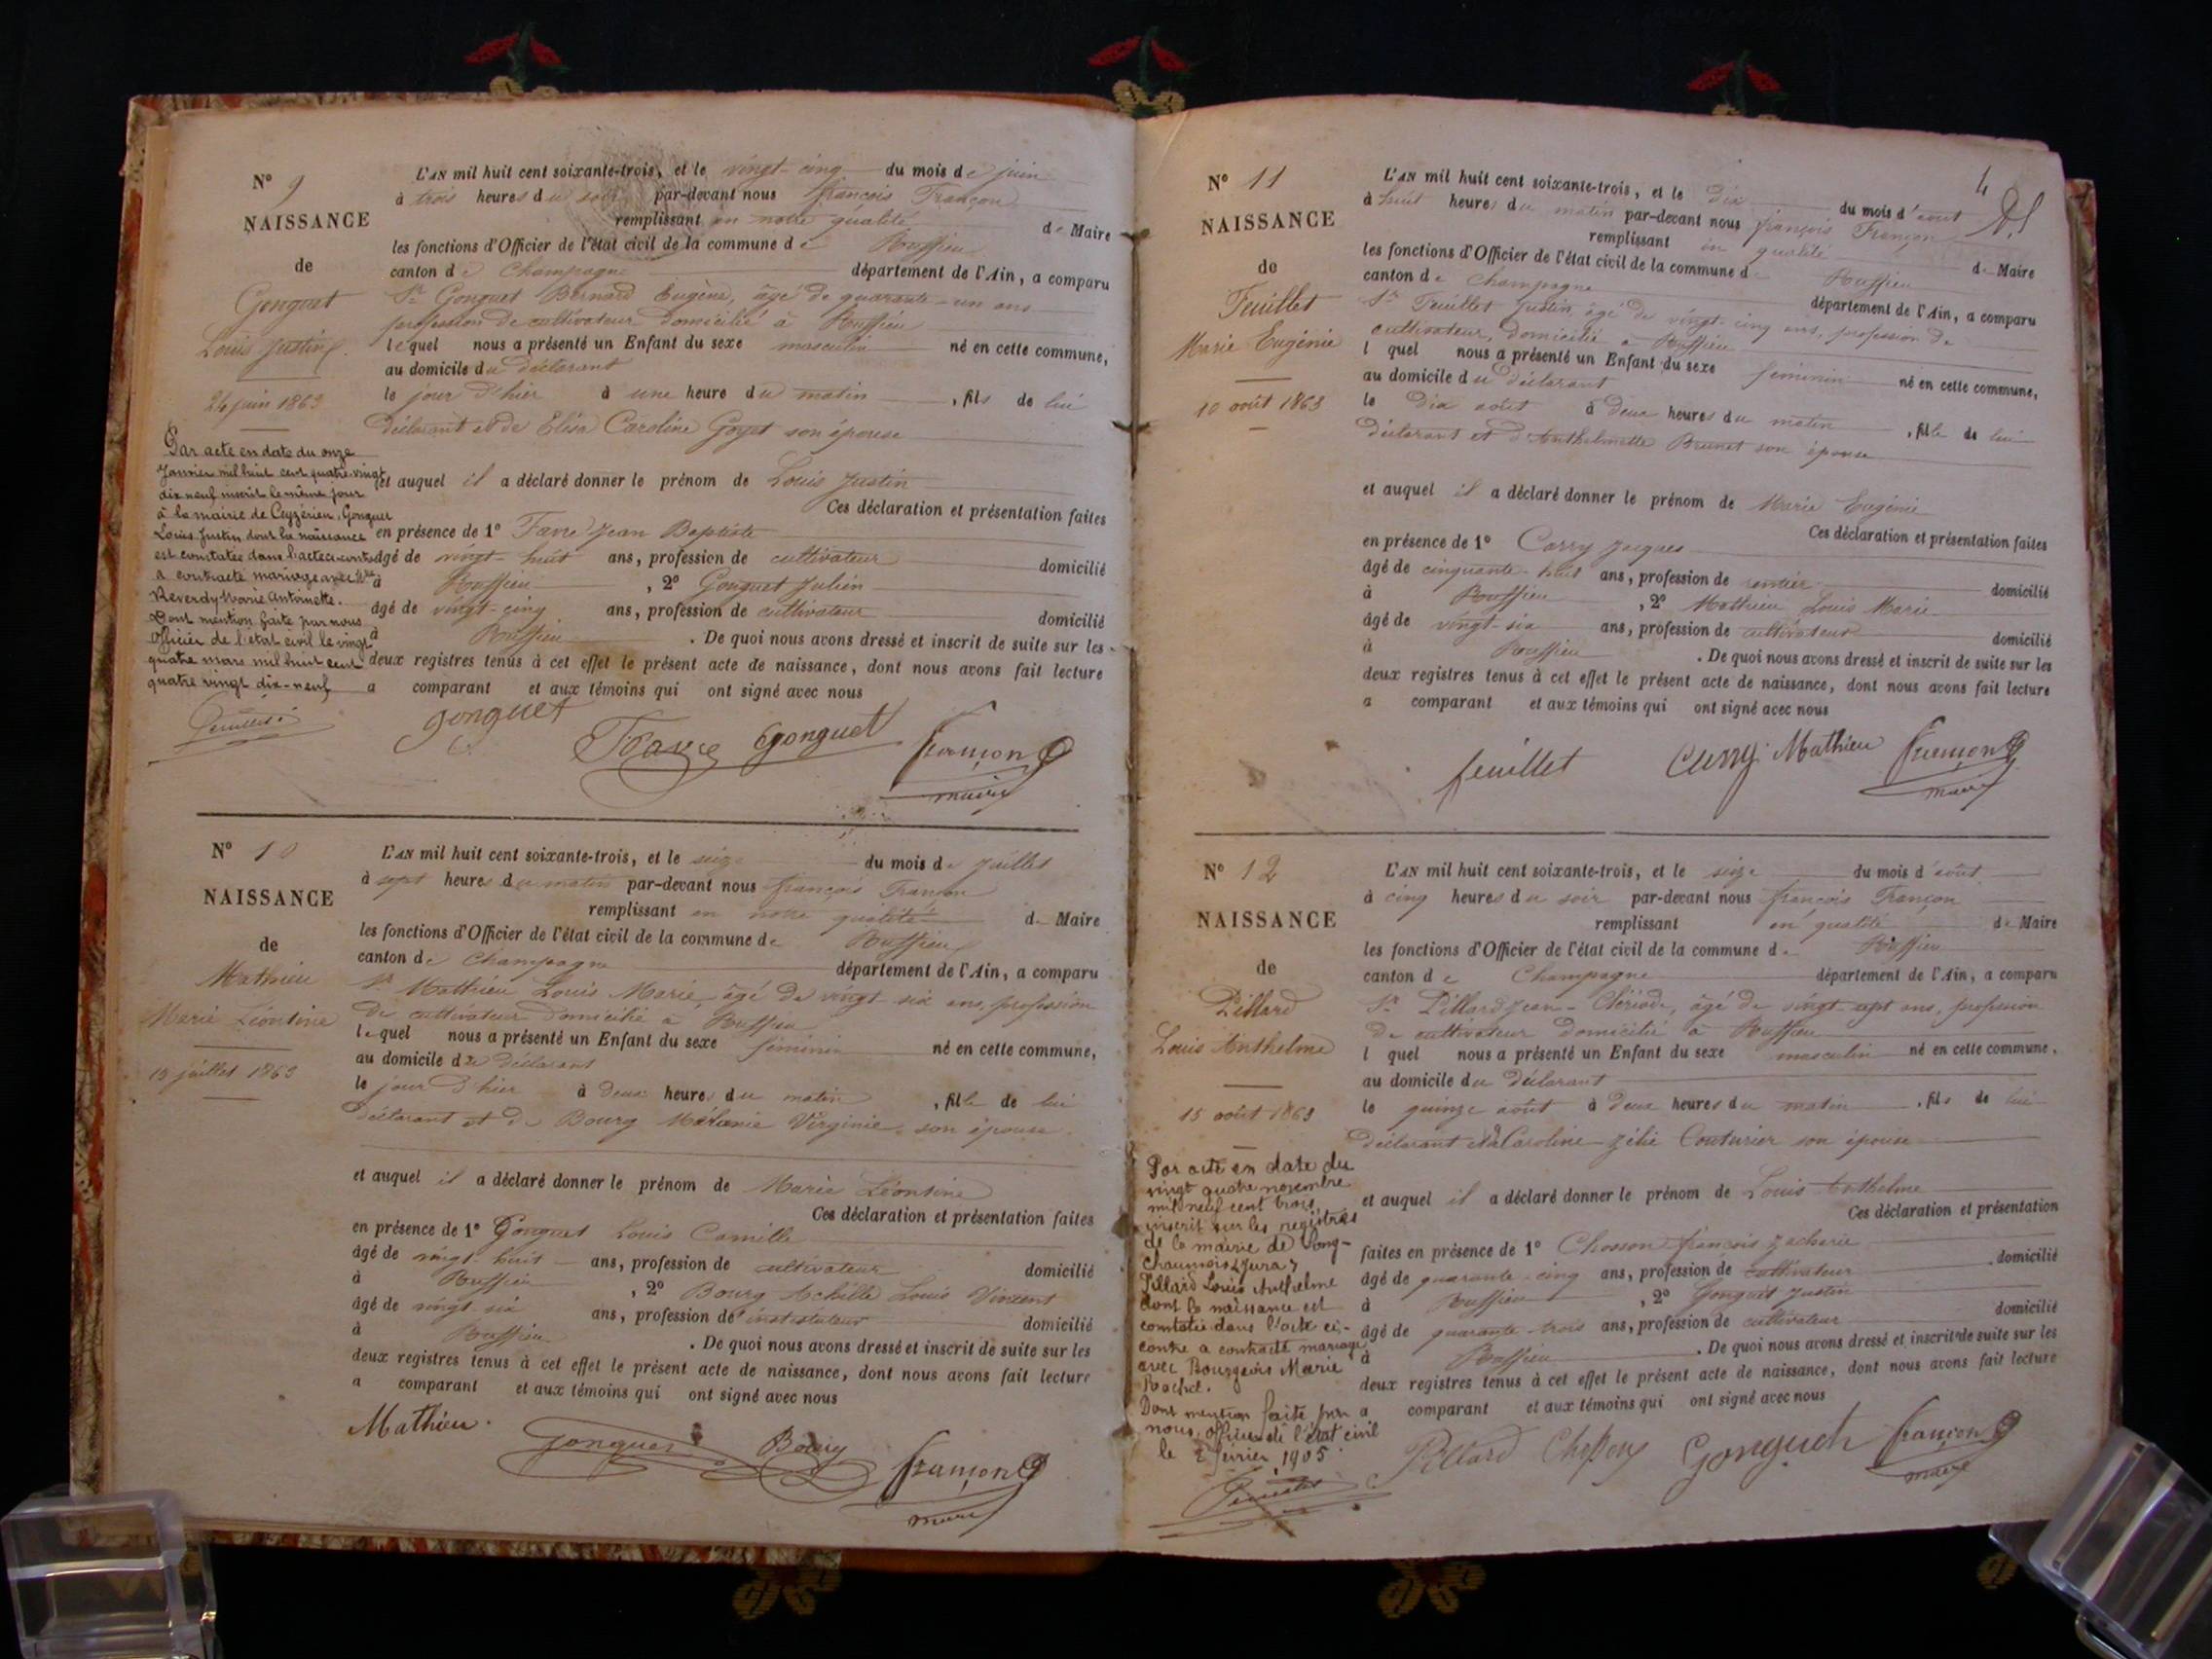 N° 9
NAISSANCE
de
Gonguet
Louis Justin
24 juin 1863
Par acte en date du onze
Janvier mil huit cent quatre-vingt
dix neuf inscrit le même jour
à la mairie de Ceyzérieu, Gonguet
Louis Justin dont la naissance
est constatée dans l'acte ci-contre
a contracté mariage avec Mlle
Reverdy Marie Antoinette.
Dont mention faite par nous
Officier de l'état civil le vingt
quatre mars mil huit cent
quatre vingt dix-neuf
L'AN mil huit cent soixante-trois, et le vingt-cinq du mois de juin
à trois heures du soir par-devant nous françois Françon
remplissant en notre qualité de Maire
les fonctions d'Officier de l'état civil de la commune de Ruffieu
canton de Champagne département de l'Ain, a comparu
Sr Gonguet Bernard Eugène, âgé de quarante-un ans
profession de cultivateur domicilié à Ruffieu
lequel nous a présenté un Enfant du sexe masculin né en cette commune,
au domicile du déclarant
le jour d'hier à une heure du matin , fils de lui
déclarant et de Elisa Caroline Goyet son épouse
et auquel il a déclaré donner le prénom de Louis Justin
Ces déclaration et présentation faites
en présence de 1° Favre Jean Baptiste
âgé de vingt-huit ans, profession de cultivateur domicilié
à Ruffieu , 2° Gonguet Julien
âgé de vingt-cinq ans, profession de cultivateur domicilié
à Ruffieu . De quoi nous avons dressé et inscrit de suite sur les
deux registres tenus à cet effet le présent acte de naissance, dont nous avons fait lecture
a comparant et aux témoins qui ont signé avec nous
gonguet Favre Gonguet françon
maire
N° 10
NAISSANCE
de
Mathieu
Marie Léontine
15 juillet 1863
L'AN mil huit cent soixante-trois, et le seize du mois de juillet
à sept heures du matin par-devant nous françois Françon
remplissant en notre qualité de Maire
les fonctions d'Officier de l'état civil de la commune de Ruffieu
canton de Champagne département de l'Ain, a comparu
Sr Mathieu Louis Marie, âgé de vingt-six ans, profession
de cultivateur domicilié à Ruffieu
lequel nous a présenté un Enfant du sexe féminin né en cette commune,
au domicile du déclarant
le jour d'hier à deux heures du matin , fille de lui
déclarant et de Bourg Mélanie Virginie, son épouse
et auquel il a déclaré donner le prénom de Marie Léontine
Ces déclaration et présentation faites
en présence de 1° Gonguet Louis Camille
âgé de vingt-huit ans, profession de cultivateur domicilié
à Ruffieu , 2° Bourg Achille Louis Vincent
âgé de vingt-six ans, profession de instituteur domicilié
à Ruffieu . De quoi nous avons dressé et inscrit de suite sur les
deux registres tenus à cet effet le présent acte de naissance, dont nous avons fait lecture
a comparant et aux témoins qui ont signé avec nous
Mathieu Gonguet Bourg françon
maire
4
N° 11
NAISSANCE
de
Feuillet
Marie Eugénie
10 août 1863
L'AN mil huit cent soixante-trois, et le dix du mois d'août
à huit heures du matin par-devant nous françois Françon
remplissant en qualité de Maire
les fonctions d'Officier de l'état civil de la commune de Ruffieu
canton de Champagne département de l'Ain, a comparu
Sr Feuillet Justin, âgé de vingt-cinq ans, profession de
cultivateur, domicilié à Ruffieu
l quel nous a présenté un Enfant du sexe féminin né en cette commune,
au domicile du déclarant
le dix août à deux heures du matin , fille de lui
déclarant et d'Anthelmette Brunet son épouse
et auquel il a déclaré donner le prénom de Marie Eugénie
Ces déclaration et présentation faites
en présence de 1° Carry Jacques
âgé de cinquante-huit ans, profession de rentier domicilié
à Ruffieu , 2° Mathieu Louis Marie
âgé de vingt-six ans, profession de cultivateur domicilié
à Ruffieu . De quoi nous avons dressé et inscrit de suite sur les
deux registres tenus à cet effet le présent acte de naissance, dont nous avons fait lecture
a comparant et aux témoins qui ont signé avec nous
feuillet Carry Mathieu françon
maire
N° 12
NAISSANCE
de
Pillard
Louis Anthelme
15 août 1863
Par acte en date du
vingt quatre novembre
mil neuf cent trois
inscrit sur les registres
de la mairie de Long-
Chaumois (Jura)
Pillard Louis Anthelme
dont la naissance est
constatée dans l'acte ci-
contre a contracté mariage
avec Bourgeois Marie
Rachel.
Dont mention faite par
nous officier de l'état civil
le 2 février 1905
L'AN mil huit cent soixante-trois, et le seize du mois d'août
à cinq heures du soir par-devant nous françois Françon
remplissant en qualité de Maire
les fonctions d'Officier de l'état civil de la commune de Ruffieu
canton de Champagne département de l'Ain, a comparu
Sr Pillard Jean, âgé de vingt-sept ans, profession
de cultivateur domicilié à Ruffieu
l quel nous a présenté un Enfant du sexe masculin né en cette commune,
au domicile du déclarant
le quinze août à deux heures du matin , fils de lui
déclarant et de Caroline Zélie Couturier son épouse
et auquel il a déclaré donner le prénom de Louis Anthelme
Ces déclaration et présentation
faites en présence de 1° Chosson françois Zacharie
âgé de quarante-cinq ans, profession de cultivateur domicilié
à Ruffieu , 2° Gonguet Justin
âgé de quarante-trois ans, profession de cultivateur domicilié
à Ruffieu . De quoi nous avons dressé et inscrit de suite sur les
deux registres tenus à cet effet le présent acte de naissance, dont nous avons fait lecture
a comparant et aux témoins qui ont signé avec nous
Pillard Chosson Gonguet françon
maire